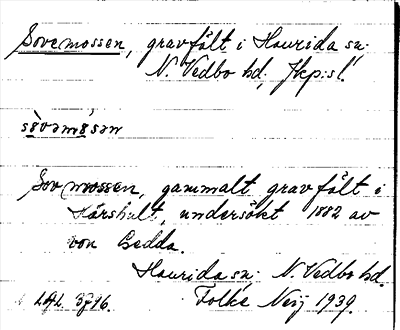 Sovemossen, gravfält i Haurida sn.
N. Vedbo hd; Jkp:s l.
sòvəmo̊sən
Sovmossen, gammalt gravfält i
Hårshult, undersökt 1882 av
von Gedda.
Haurida sn. N. Vedbo hd.
Folke Neij 1939.